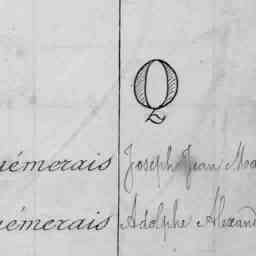 Q
émerais Joseph Jean Ma
émerais Adolphe Alexand